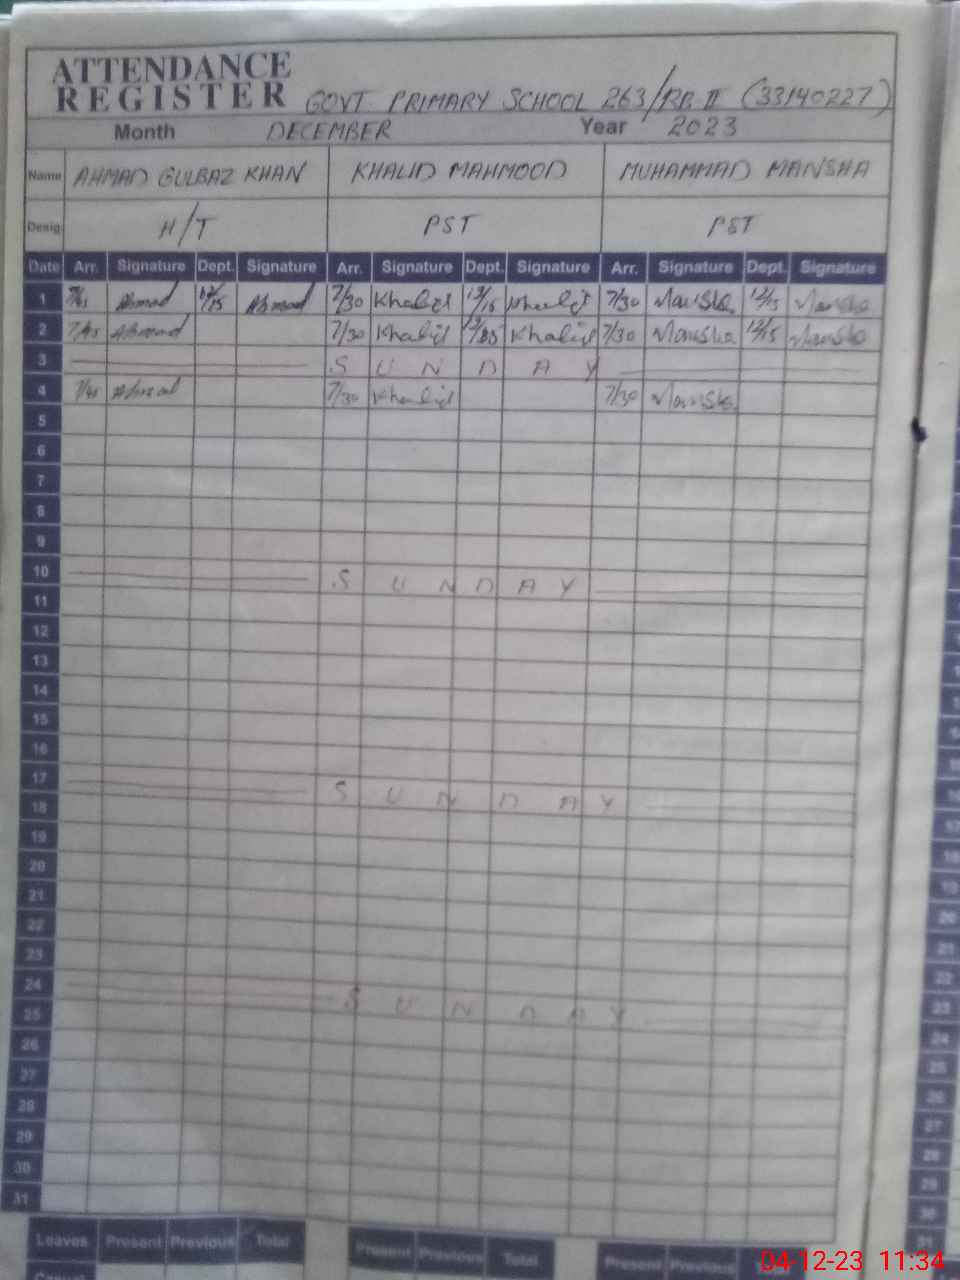 ATTENDANCE
REGISTER GOVT PRIMARY SCHOOL 263/RB-II (33140227)
Month DECEMBER Year 2023
Name AHMAD GULBAZ KHAN KHALID MAHMOOD MUHAMMAD MANSHA
Desig. H/T PST PST
Date Arr. Signature Dept. Signature Arr. Signature Dept. Signature Arr. Signature Dept. Signature
1 Ahmad 12/15 Ahmad 7/30 Khalid 12/15 Khalid 7/30 Mansha 12/15 Mansha
2 7/45 Ahmad 7/30 Khalid Khalid 7/30 Mansha 12/15 Mansha
3 SUNDAY
4 7/45 Ahmad 7/30 Khalid 7/30 Mansha
5
6
7
8
9
10 SUNDAY
11
12
13
14
15
16
17 SUNDAY
18
19
20
21
22
23
24 SUNDAY
25
26
27
28
29
30
31
Leaves Present Previous Total Present Previous Total Present Previous
04-12-23 11:34